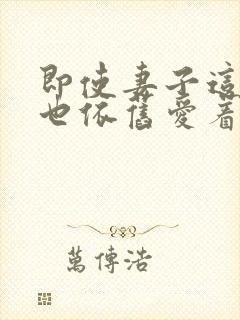 即使妻子這
也依舊愛着
萬傳浩